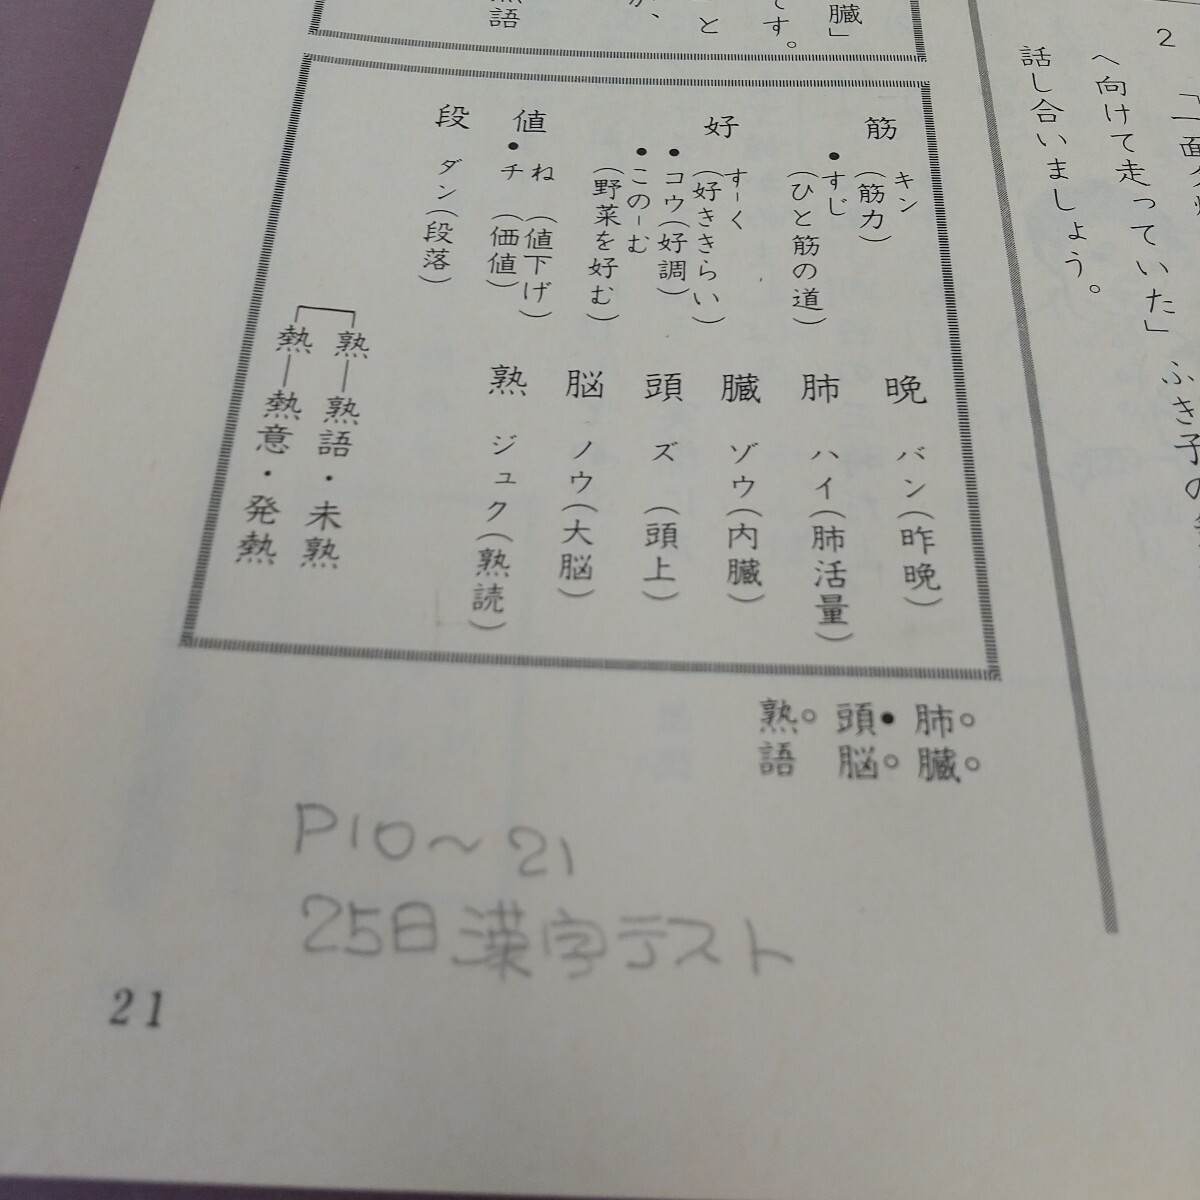 2
へ向けて走っていた」ふき子の
話し合いましょう。
臓」
です。
と
が、
熟語
筋
キン
(筋力)
・すじ
(ひと筋の道)
好
すーく
(好ききらい)
・コウ(好調)
・このーむ
(野菜を好む)
値
ね(値下げ)
・チ(価値)
段
ダン(段落)
晩 バン(昨晩)
肺 ハイ(肺活量)
臓 ゾウ(内臓)
頭 ズ(頭上)
脳 ノウ(大脳)
熟 ジュク(熟読)
熟―熟語・未熟
熱―熱意・発熱
肺。臓。
頭・脳。
熟。語
P10～21
25日漢字テスト
21